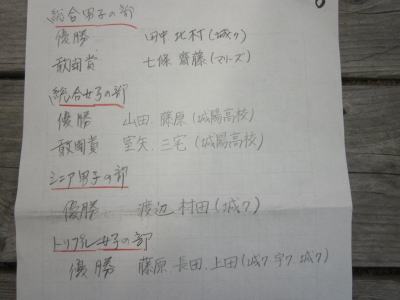 総合男子の部
優勝 田中 北村(城ク)
敢闘賞 七條 齋藤(マリーズ)
総合女子の部
優勝 山田. 藤原(城陽高校)
敢闘賞 室矢. 三宅(城陽高校)
シニア男子の部
優勝 渡辺 村田(城ク)
トリプル女子の部
優勝 藤原. 長田. 上田(城ク. 宇ク. 城ク)